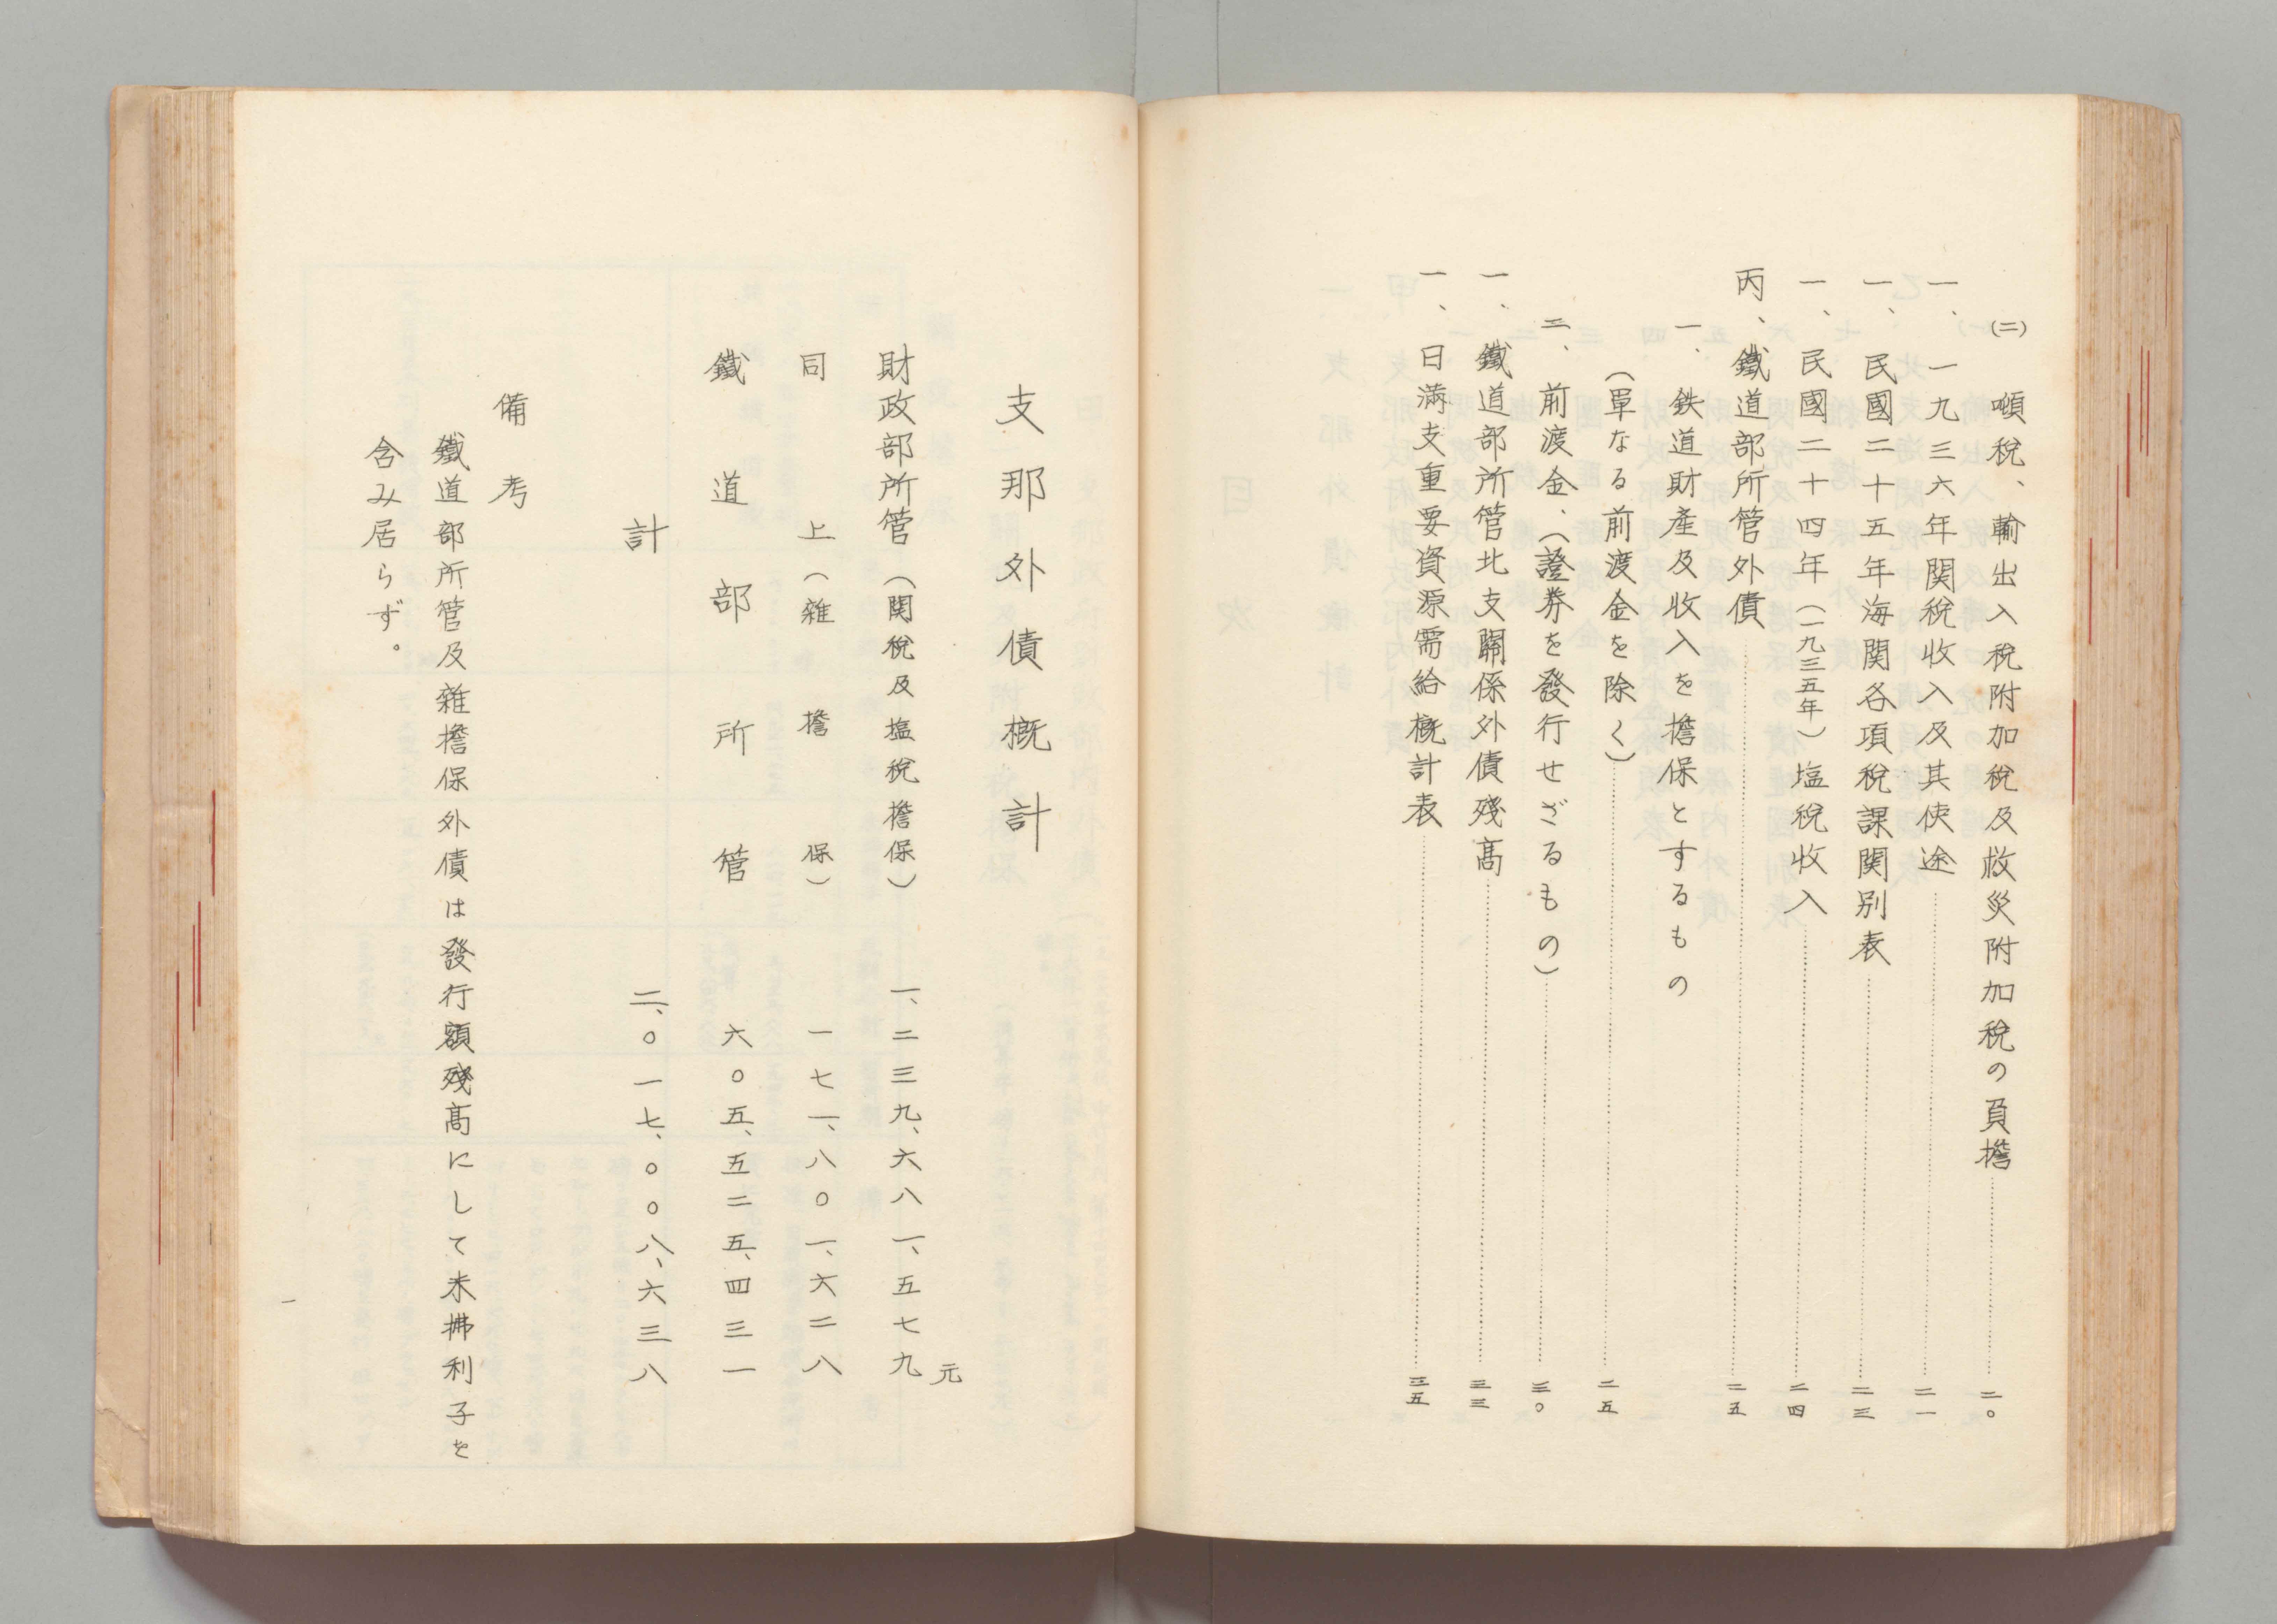 (二) 噸税、輸出入税附加税及救災附加税の負擔 二〇
一、一九三六年関税收入及其使途 二一
一、民國二十五年海関各項税課関別表 二三
一、民國二十四年(一九三五年)塩税收入 二四
丙、鐵道部所管外債 二五
一、鉄道財産及收入を擔保とするもの
(單なる前渡金を除く) 二五
二、前渡金、(證券を發行せざるもの) 三〇
一、鐵道部所管北支關係外債殘高 三三
一、日滿支重要資源需給概計表 三五
支那外債概計
元
財政部所管(関税及塩税擔保) 一、二三九、六八一、五七九
同上(雜擔保) 一七一、八〇一、六二八
鐵道部所管 六〇五、五二五、四三一
計 二、〇一七、〇〇八、六三八
備考
鐵道部所管及雜擔保外債は發行額殘高にして未拂利子を
含み居らず。
一